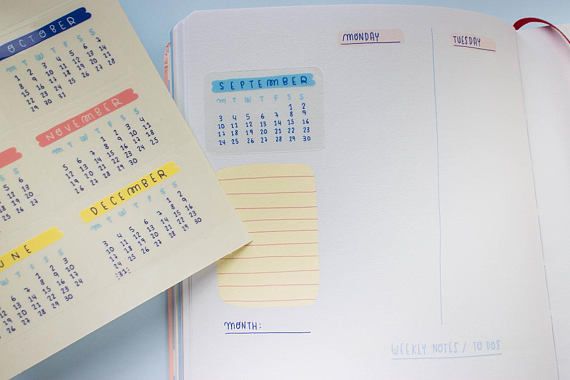 OCTOBER
M T W T F S S
1 2 3 4 5 6 7
8 9 10 11 12 13 14
15 16 17 18 19 20 21
22 23 24 25 26 27 28
29 30 31
NOVEMBER
M T W T F S S
1 2 3 4
5 6 7 8 9 10 11
12 13 14 15 16 17 18
19 20 21 22 23 24 25
26 27 28 29 30
DECEMBER
M T W T F S S
1 2
3 4 5 6 7 8 9
10 11 12 13 14 15 16
17 18 19 20 21 22 23
24 25 26 27 28 29 30
31
UNE
T W T F S S
1 2 3
MONDAY
TUESDAY
SEPTEMBER
M T W T F S S
1 2
3 4 5 6 7 8 9
10 11 12 13 14 15 16
17 18 19 20 21 22 23
24 25 26 27 28 29 30
MONTH:
WEEKLY NOTES / TO DOS